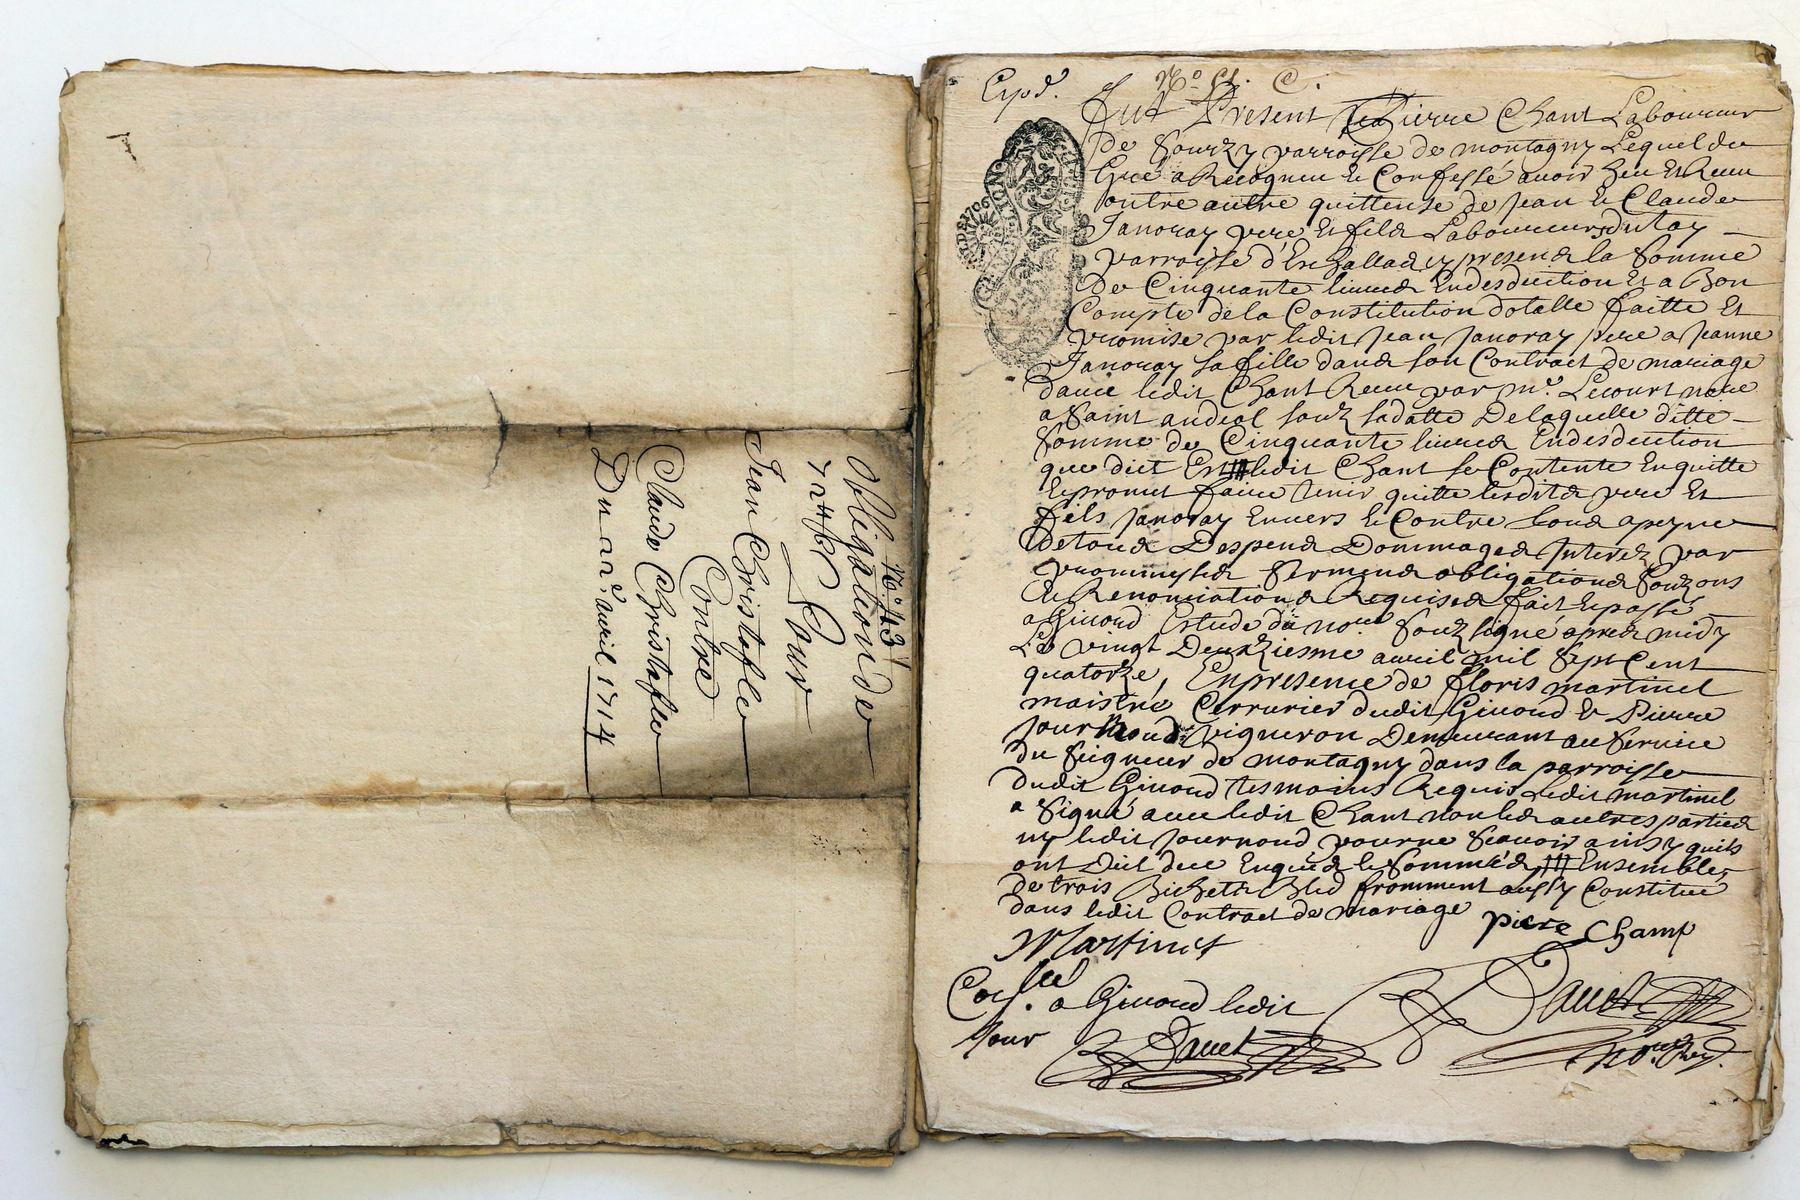 No. 43
Obligation de
72 ₶ 6 s Pour
Jean Christofle
Contre
Claude Christofle
Du 22e. avril 1714
Expd. No. 51. C.
Fut Present Pierre Chant Laboureur
de Sourzy parroisse de montagny Lequel de
Gré a Recogneu et Confessé avoir heu et Receu
outre autre quittense de Jean et Claude
Janoray pere et fils Laboureurs du Lay
parroisse d'Eschallas cy presens la somme
de Cinquante livres En desduction et a Bon
Compte de la Constitution dotalle faitte et
promise par ledit Jean Janoray pere a Jeanne
Janoray sa fille dans son Contract de mariage
avec ledit Chant Receu par me. Lecourt nore
a Saint andeol soubz sa datte De laquelle ditte
somme de Cinquante livres En desduction
que dict Est ledit Chant se Contente En quitte
et promet faire tenir quitte lesdits pere et
fils Janoray Envers et Contre tous a peyne
de tous Despens Dommages Interez par
promesses sermens obligations Soubz
et Renonciations Requises fait et passé
a Givord Estude du nore Soubzsigné apres midy
Le vingt Deuxziesme avril mil Sept Cent
quatorze, En presence de floris martinel
maistre Cerrurier dudit Givord et Pierre
Journoud vigneron Demeurant au Service
du Seigneur de montagny dans la parroisse
dudit Givord tesmoins Requis Ledit martinel
a Signé avec ledit Chant non les autres parties
ny ledit Journoud pour ne Scavoir ainsy quils
ont Dit de ce Enquis et Sommés Ensemble
de trois Bichetts Bled fromment aussy Constitué
dans ledit Contract de mariage
piere Chant
Martinel
a Givord ledit
Jour